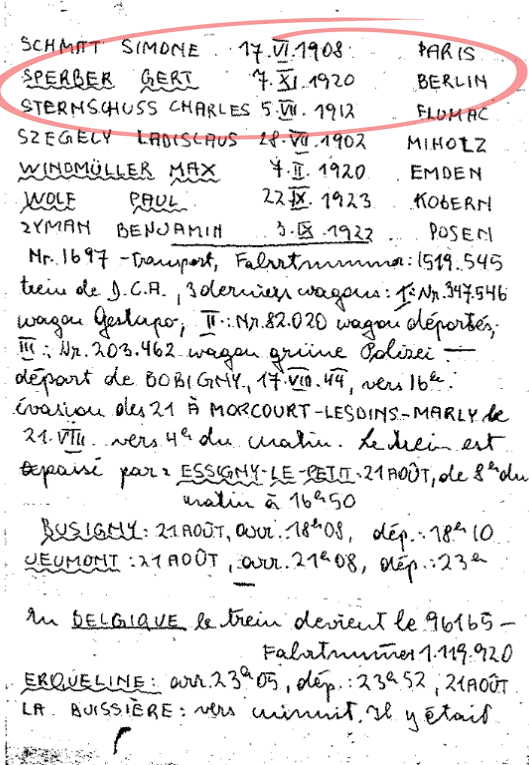 SCHMITT SIMONE 17.VI.1908. PARIS
SPERBER GERT 7.XI.1920 BERLIN
STERNSCHUSS CHARLES 5.VII.1912 FLUMAC
SZEGELY LADISLAUS 28.VII.1902 MIHOLZ
WINDMÜLLER MAX 7.II.1920 EMDEN
WOLF PAUL 22.IX.1923 KOBERN
ZYMAN BENJAMIN 3.IX.1922 POSEN
Nr.1697-Transport, Fahrtnummer: 1519.545
train de D.C.A., 3 derniers wagons: I: Nr.347.546
wagon Gestapo, II: Nr.82.020 wagon déportés,
III: Nr.203.462 wagon grüne Polizei —
départ de BOBIGNY, 17.VIII.44, vers 16h.
évasion des 21 À MORCOURT-LESDINS-MARLY le
21.VIII. vers 4h du matin. Le train est
passé par: ESSIGNY-LE-PETIT: 21 AOÛT, de 8h du
matin à 16h50
BUSIGNY: 21 AOÛT, arr. 18h08, dép.: 18h10
JEUMONT: 21 AOÛT, arr. 21h08, dép.: 23h
En BELGIQUE le train devient le 96165 —
Fahrtnummer 1.119.920
ERQUELINE: arr. 23h05, dép.: 23h52, 21 AOÛT
LA BUISSIÈRE: vers minuit. Il y était